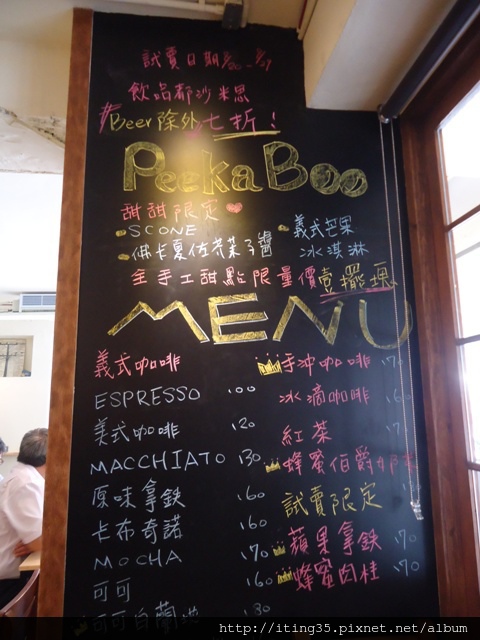 試賣日期
飲品都沙米思
#Beer除外七折!
PeekaBoo
甜甜限定
SCONE
佛卡夏佐芥茉子醬
義式芒果
冰淇淋
全手工甜點限量價壹擺
MENU
義式咖啡
ESPRESSO 100
美式咖啡 120
MACCHIATO 130
原味拿鉄 160
卡布奇諾 160
MOCHA 170
可可 160
可可白蘭地 130
手沖咖啡 170
冰滴咖啡 160
紅茶
蜂蜜伯爵
試賣限定
蘋果拿鉄 170
蜂蜜肉桂 170
http://iting35.pixnet.net/album